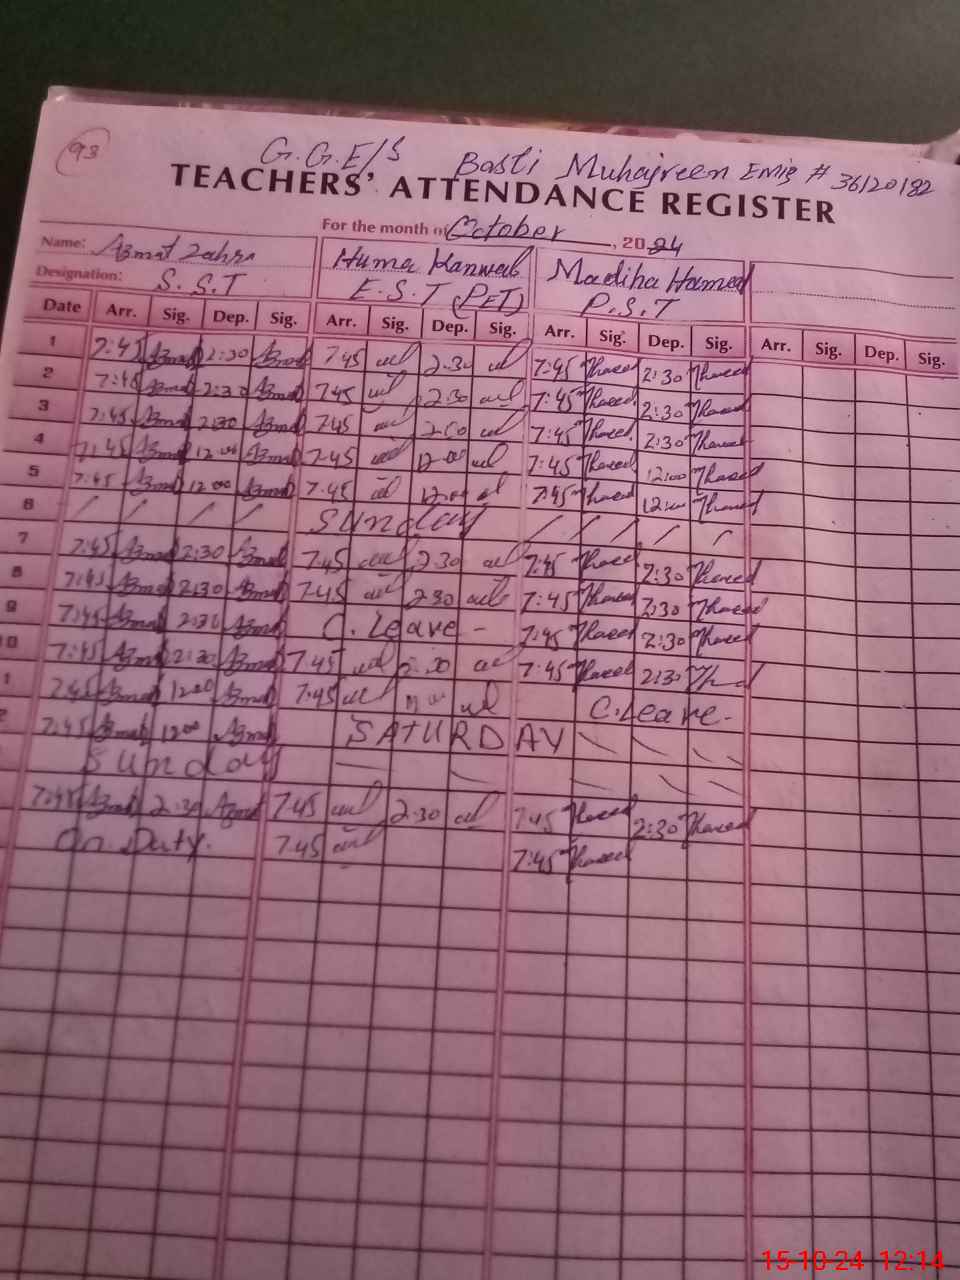 93
G.G.E/S Basti Muhajreen Emis # 36120182
TEACHERS' ATTENDANCE REGISTER
For the month of October, 2024
Name: Azmat Zahra Huma Kanwal Madiha Hamed
Designation: S.S.T E.S.T (PET) P.S.T
Date Arr. Sig. Dep. Sig. Arr. Sig. Dep. Sig. Arr. Sig. Dep. Sig. Arr. Sig. Dep. Sig.
1 7:45 Azmat 2:30 Azmat 7:45 2:30 7:45 2:30
2 7:45 Azmat 2:30 Azmat 7:45 2:30 7:45 2:30
3 7:45 Azmat 2:30 Azmat 7:45 2:30 7:45 2:30
4 7:45 Azmat 12:00 Azmat 7:45 12:00 7:45 12:00
5 7:45 Azmat 12:00 Azmat 7:45 12:00 7:45 12:00
6 / / / / Sunday / / / / /
7 7:45 Azmat 2:30 Azmat 7:45 2:30 7:45 2:30
8 7:45 Azmat 2:30 Azmat 7:45 2:30 7:45 2:30
9 7:45 Azmat 2:30 Azmat C. Leave - 7:45 2:30
10 7:45 Azmat 2:30 Azmat 7:45 2:30 7:45 2:30
1 7:45 Azmat 12:00 Azmat 7:45 C.Leave-
2 7:45 Azmat 12:00 Azmat SATURDAY
Sunday
7:45 Azmat 2:30 Azmat 7:45 2:30 7:45 2:30
On Duty. 7:45 7:45
15-10-24 12:14